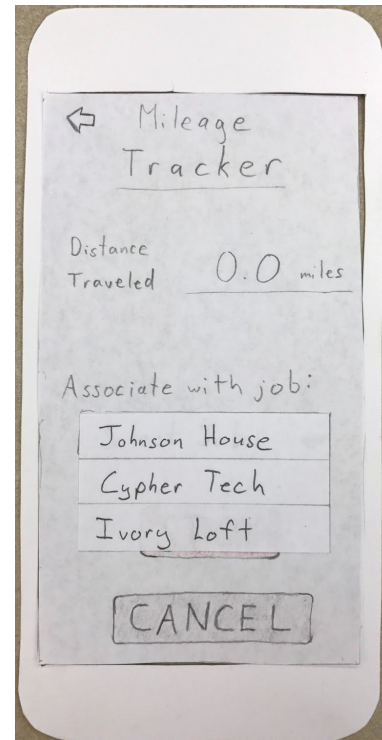 Mileage
Tracker
Distance
Traveled 0.0 miles
Associate with job:
Johnson House
Cypher Tech
Ivory Loft
CANCEL